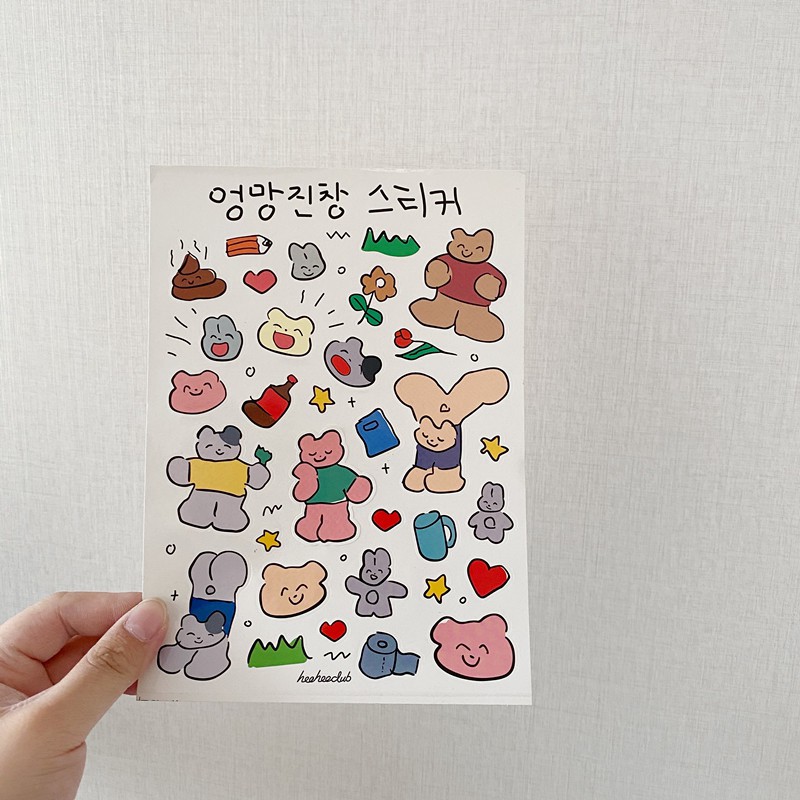 엉망진창 스티커
heeheeclub